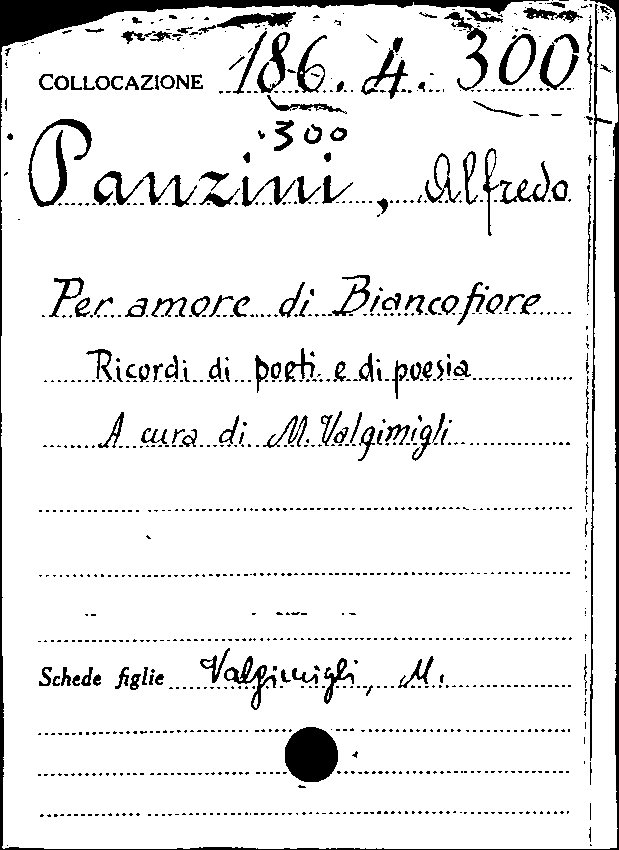 COLLOCAZIONE 186. 4. 300
300
Panzini, Alfredo
Per amore di Biancofiore
Ricordi di poeti e di poesia
A cura di M. Valgimigli
Schede figlie Valgimigli, M.